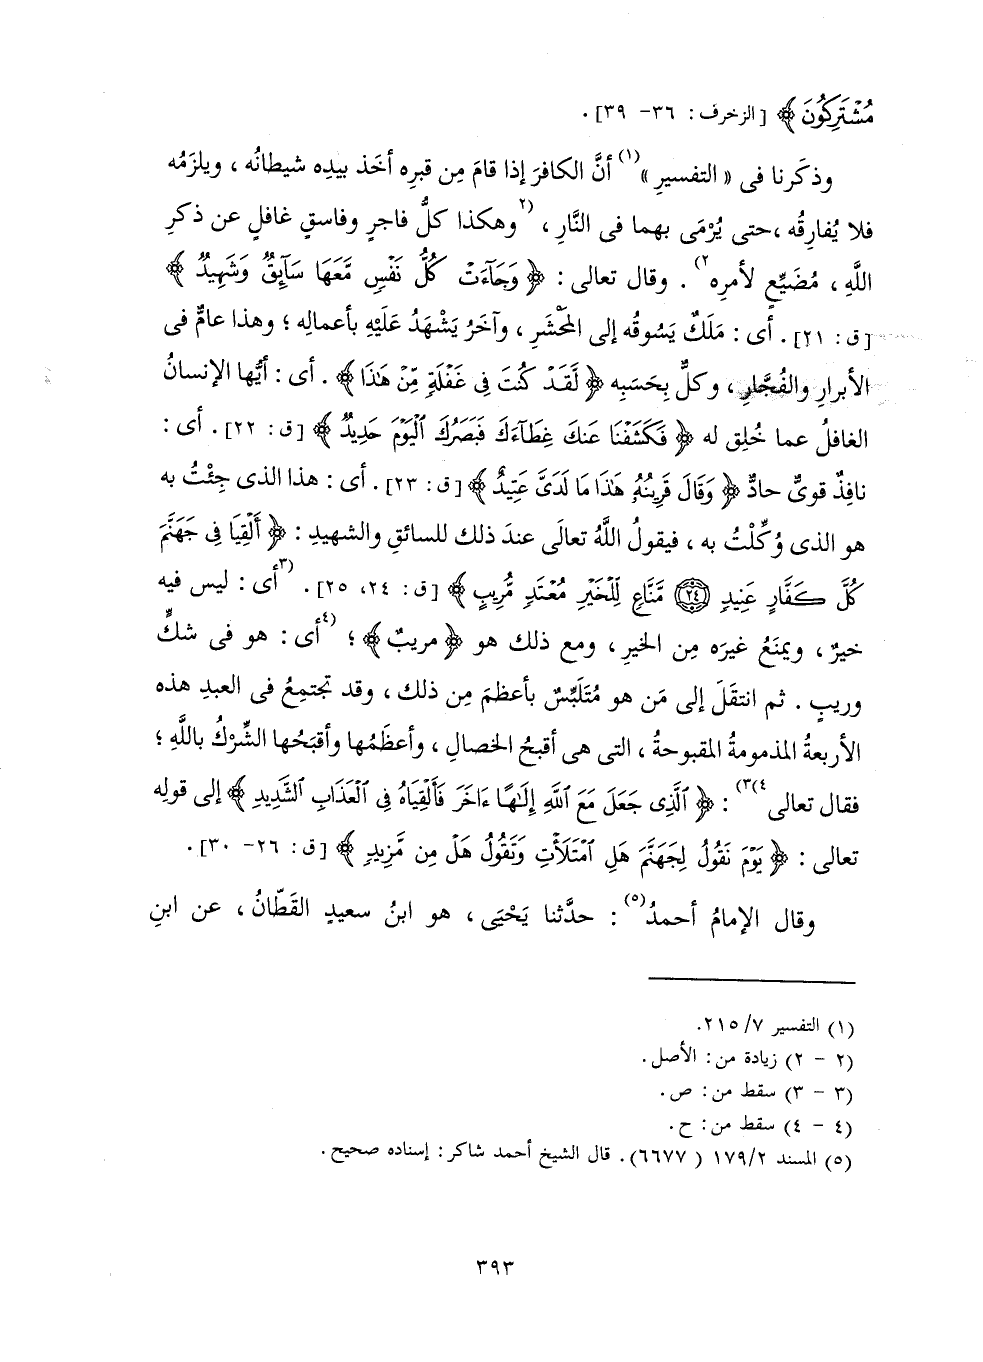 مُشْتَرِكُونَ ﴾ [الزخرف : ٣٦- ٣٩] .
وذكَرنا فى « التفسيرِ »(١) أنَّ الكافرَ إذا قامَ مِن قبرِه أخَذ بيدِه شيطانُه ، ويلزَمُه
فلا يُفارِقُه ،حتى يُرْمَى بهما فى النَّارِ ، (٢وهكذا كلُّ فاجرٍ وفاسقٍ غافلٍ عن ذكرِ
اللَّهِ ، مُضَيِّعٍ لأمرِه٢) . وقال تعالى : ﴿ وَجَآءَتْ كُلُّ نَفْسٍ مَّعَهَا سَآئِقٌ وَشَهِيدٌ ﴾
[ق : ٢١] . أى : مَلَكٌ يَسُوقُه إلى المَحْشَرِ ، وآخَرُ يَشْهَدُ عَلَيْهِ بأعمالِه ؛ وهذا عامٌّ فى
الأبرارِ والفُجَّارِ ، وكلٌّ بِحَسَبِه ﴿ لَقَدْ كُنتَ فِى غَفْلَةٍ مِّنْ هَٰذَا ﴾ . أى : أيُّها الإنسانُ
الغافلُ عما خُلِق له ﴿ فَكَشَفْنَا عَنكَ غِطَآءَكَ فَبَصَرُكَ ٱلْيَوْمَ حَدِيدٌ ﴾ [ق : ٢٢] . أى :
نافِذٌ قوىٌّ حادٌّ ﴿ وَقَالَ قَرِينُهُۥ هَٰذَا مَا لَدَىَّ عَتِيدٌ ﴾ [ق : ٢٣] . أى : هذا الذى جِئْتُ به
هو الذى وُكِّلْتُ به ، فيقولُ اللَّهُ تعالَى عندَ ذلك للسائقِ والشهيدِ : ﴿ أَلْقِيَا فِى جَهَنَّمَ
كُلَّ كَفَّارٍ عَنِيدٍ ﴿٢٤﴾ مَّنَّاعٍ لِّلْخَيْرِ مُعْتَدٍ مُّرِيبٍ ﴾ [ق : ٢٤، ٢٥] . (٣أى : ليس فيه
خيرٌ ، ويمنَعُ غيرَه مِن الخيرِ ، ومع ذلك هو ﴿ مريبٌ ﴾ ؛ (٤أى : هو فى شكٍّ
وريبٍ . ثم انتقَلَ إلى مَن هو مُتَلَبِّسٌ بأعظمَ مِن ذلك ، وقد تجتمِعُ فى العبدِ هذه
الأربعةُ المذمومةُ المقبوحةُ ، التى هى أقبحُ الخصالِ ، وأعظَمُها وأقبَحُها الشِّرْكُ باللَّهِ ؛
فقال تعالى٤)٣) : ﴿ ٱلَّذِى جَعَلَ مَعَ ٱللَّهِ إِلَٰهًا ءَاخَرَ فَأَلْقِيَاهُ فِى ٱلْعَذَابِ ٱلشَّدِيدِ ﴾ إلى قولِه
تعالى : ﴿ يَوْمَ نَقُولُ لِجَهَنَّمَ هَلِ ٱمْتَلَأْتِ وَتَقُولُ هَلْ مِن مَّزِيدٍ ﴾ [ق : ٢٦- ٣٠] .
وقال الإمامُ أحمدُ(٥) : حدَّثنا يَحْيَى ، هو ابنُ سعيدٍ القَطَّانُ ، عن ابنِ
(١) التفسير ٧/ ٢١٥.
(٢ - ٢) زيادة من : الأصل .
(٣ - ٣) سقط من : ص .
(٤ - ٤) سقط من : ح .
(٥) المسند ٢/ ١٧٩ ( ٦٦٧٧) . قال الشيخ أحمد شاكر : إسناده صحيح .
٣٩٣